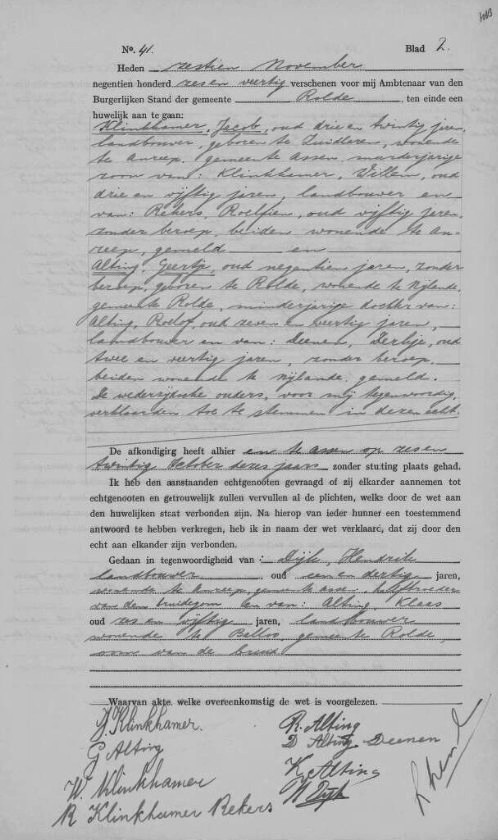 No. 41. Blad 2.
Heden zestien November
negentien honderd zes en veertig verschenen voor mij Ambtenaar van den
Burgerlijken Stand der gemeente Rolde, ten einde een
huwelijk aan te gaan:
Klinkhamer, Jacob, oud drie en twintig jaren,
landbouwer, geboren te Zuidlaren, wonende
te Anreep, gemeente Assen, meerderjarige
zoon van: Klinkhamer, Willem, oud
drie en vijftig jaren, landbouwer en
van: Rekers, Roelfien, oud vijftig jaren,
zonder beroep, beiden wonende te An-
reep, gemeld en
Alting, Geertje, oud negentien jaren, zonder
beroep, geboren te Rolde, wonende te Nijlande,
gemeente Rolde, minderjarige dochter van:
Alting, Roelof, oud zeven en veertig jaren,
landbouwer en van: Deenen, oud
twee en veertig jaren, zonder beroep,
beiden wonende te Nijlande, gemeld.
De wederzijdsche ouders, voor mij tegenwoordig,
verklaarden toe te stemmen in deze echt.
De afkondigirg heeft alhier en te Assen op zes en
twintig October dezes jaars zonder stuiting plaats gehad.
Ik heb den aanstaanden echtgenooten gevraagd of zij elkander aannemen tot
echtgenooten en getrouwelijk zullen vervullen al de plichten, welke door de wet aan
den huwelijken staat verbonden zijn. Na hierop van ieder hunner een toestemmend
antwoord te hebben verkregen, heb ik in naam der wet verklaard, dat zij door den
echt aan elkander zijn verbonden.
Gedaan in tegenwoordigheid van: Dijk, Hendrik
landbouwer oud een en dertig jaren,
wonende te Anreep, gemeente Assen, halfbroeder
van den bruidegom en van: Alting, Klaas
oud zes en vijftig jaren, landbouwer
wonende te Balloo, gemeente Rolde,
oom van de bruid
Waarvan akte, welke overeenkomstig de wet is voorgelezen.
J. Klinkhamer. R. Alting
G Alting D Alting Deenen
W. Klinkhamer K. Alting
R Klinkhamer Rekers H Dijk